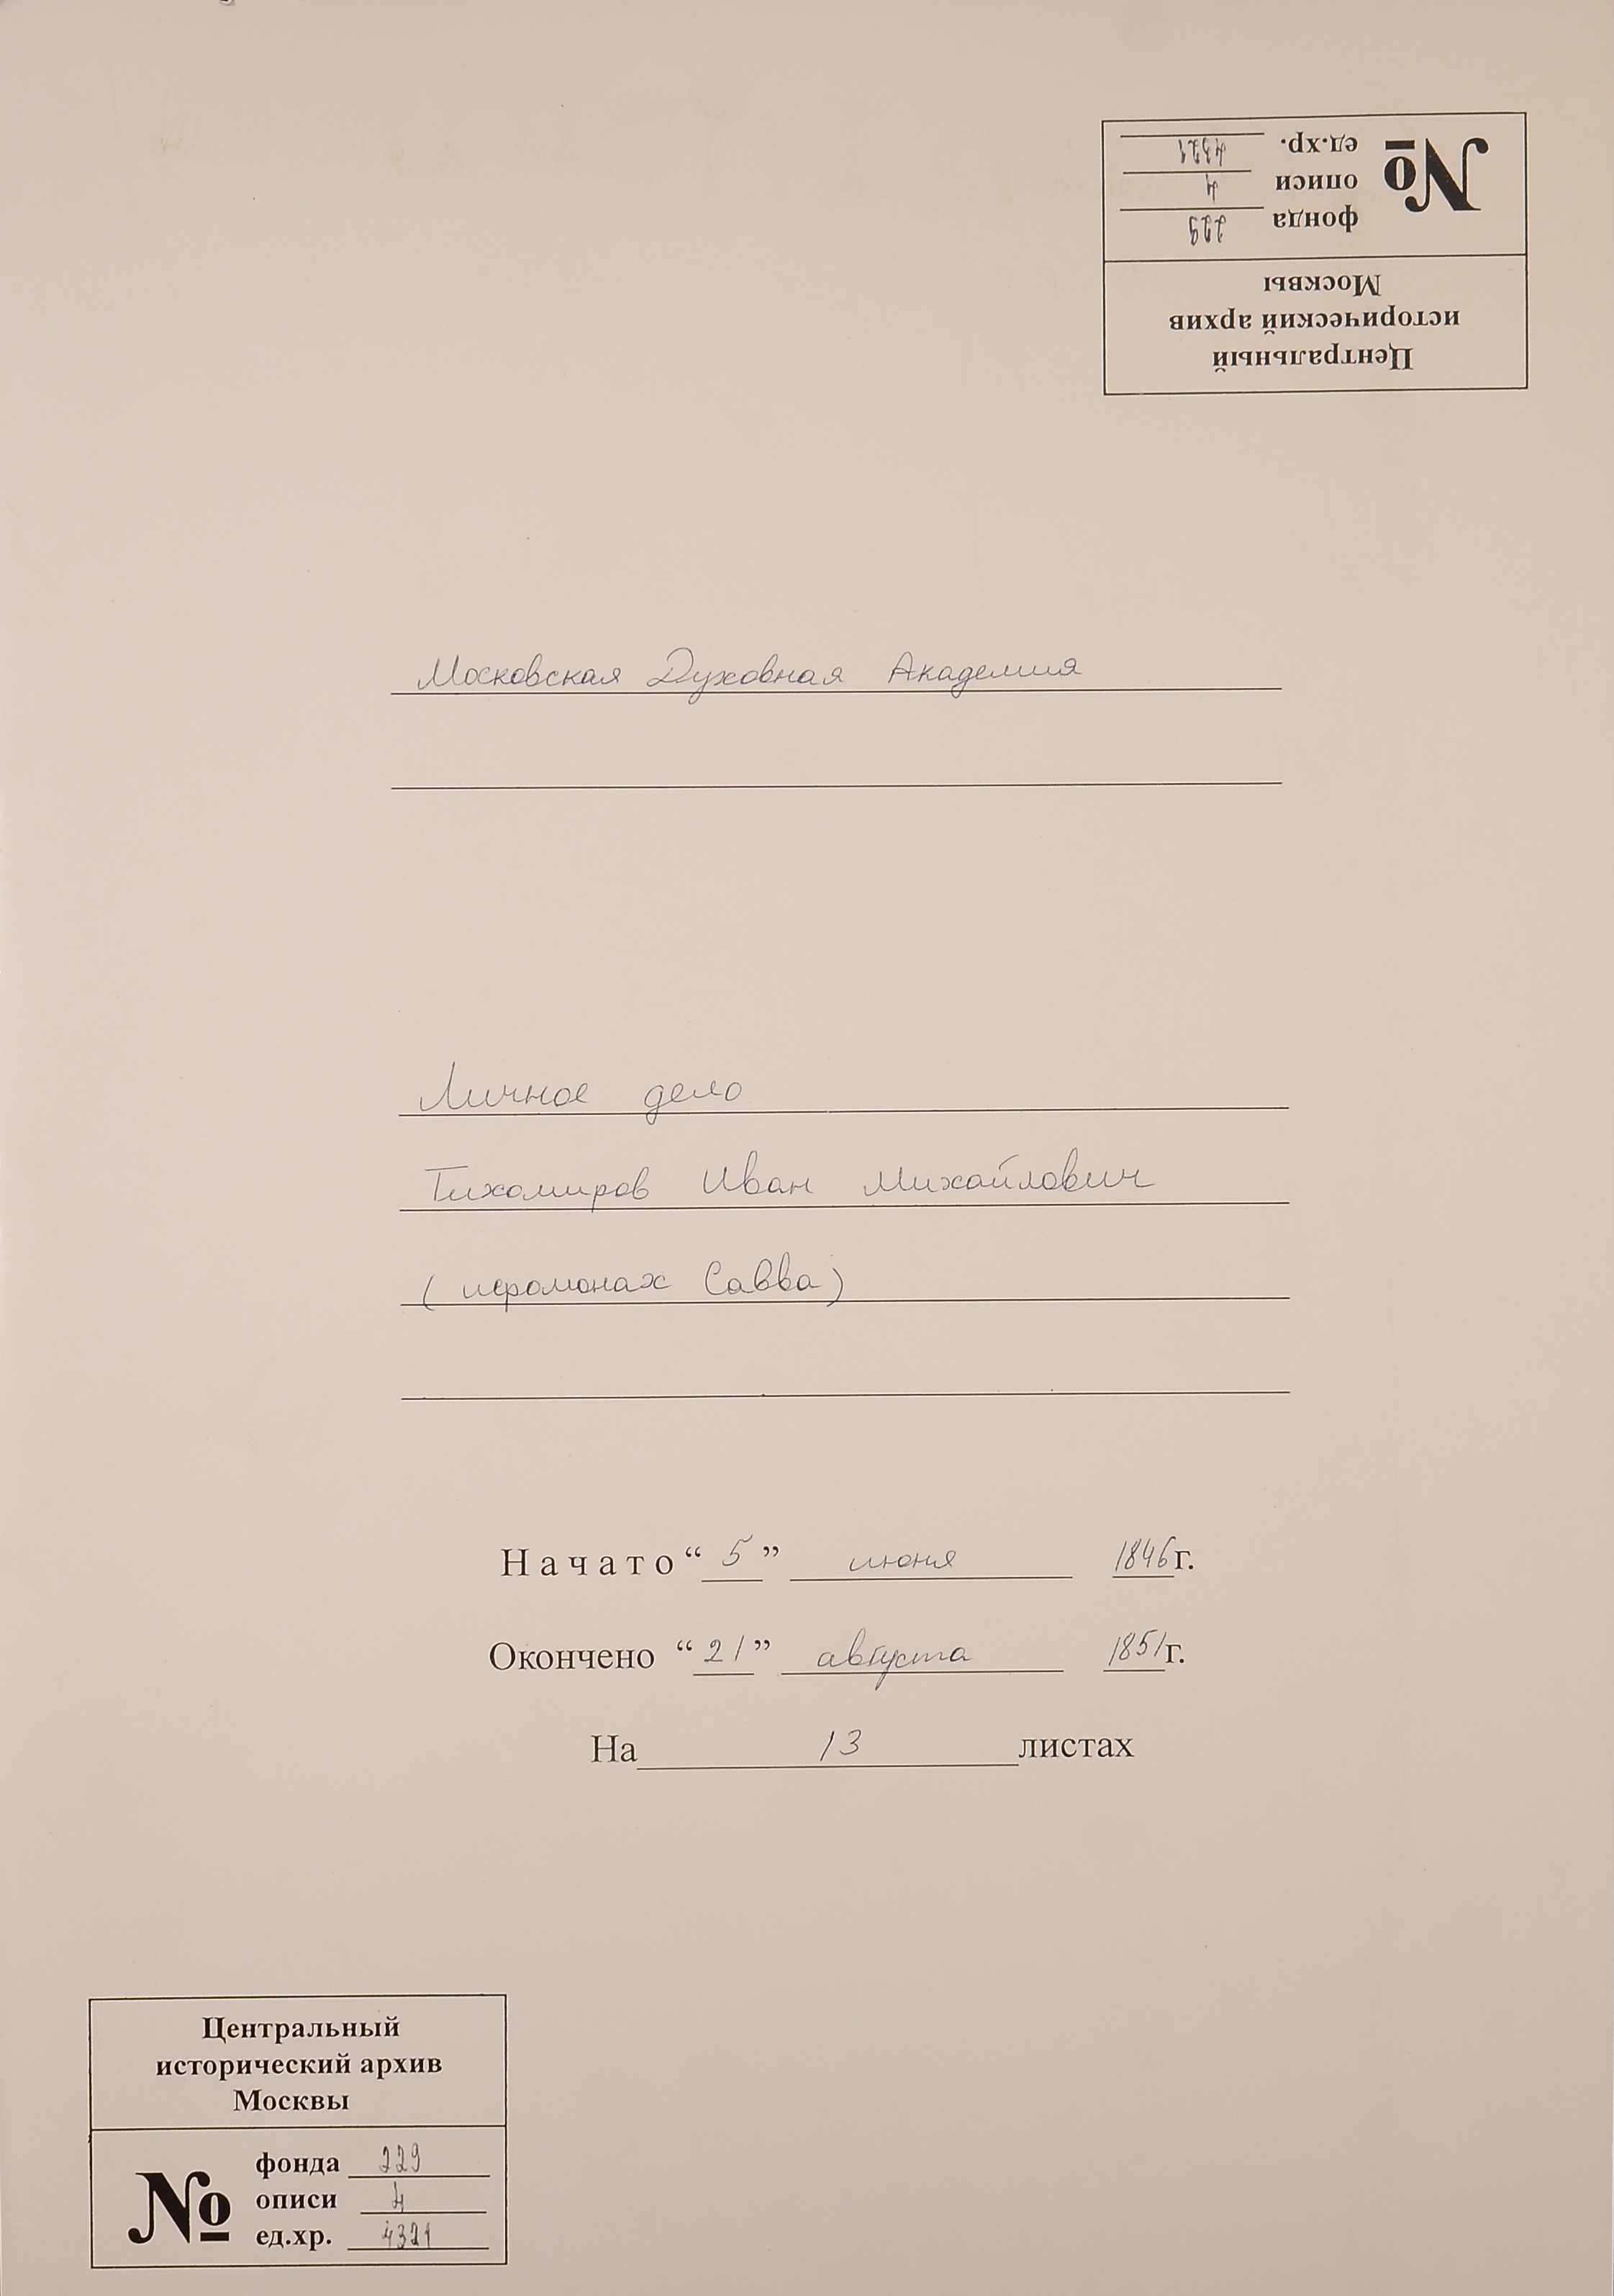 Центральный
исторический архив
Москвы
№
фонда 229
описи 4
ед.хр. 4321
Московская Духовная Академия
Личное дело
Тихомиров Иван Михайлович
(иеромонах Савва)
Начато “5” июня 1846г.
Окончено “21” августа 1851г.
На 13 листах
Центральный
исторический архив
Москвы
№
фонда 229
описи 4
ед.хр. 4321